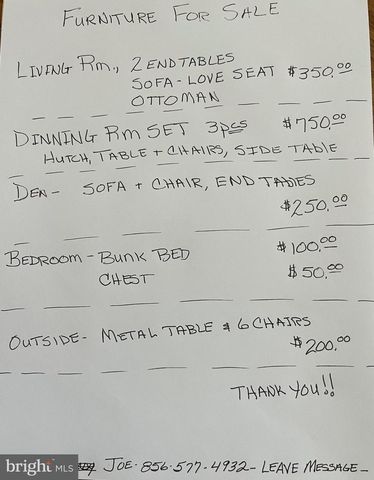 FURNITURE FOR SALE
LIVING RM., 2 END TABLES
SOFA - LOVE SEAT $350.00
OTTOMAN
DINNING RM SET 3pcs $750.00
HUTCH, TABLE + CHAIRS, SIDE TABLE
DEN - SOFA + CHAIR, END TABLES
$250.00
BEDROOM - BUNK BED $100.00
CHEST $50.00
OUTSIDE - METAL TABLE & 6 CHAIRS
$200.00
THANK YOU!!
JOE - 856-577-4932 - LEAVE MESSAGE -
bright MLS